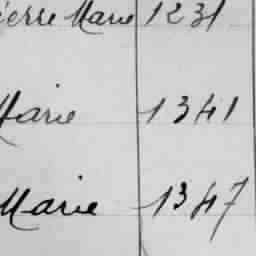 ierre Marie 1231
Marie 1341
Marie 1347